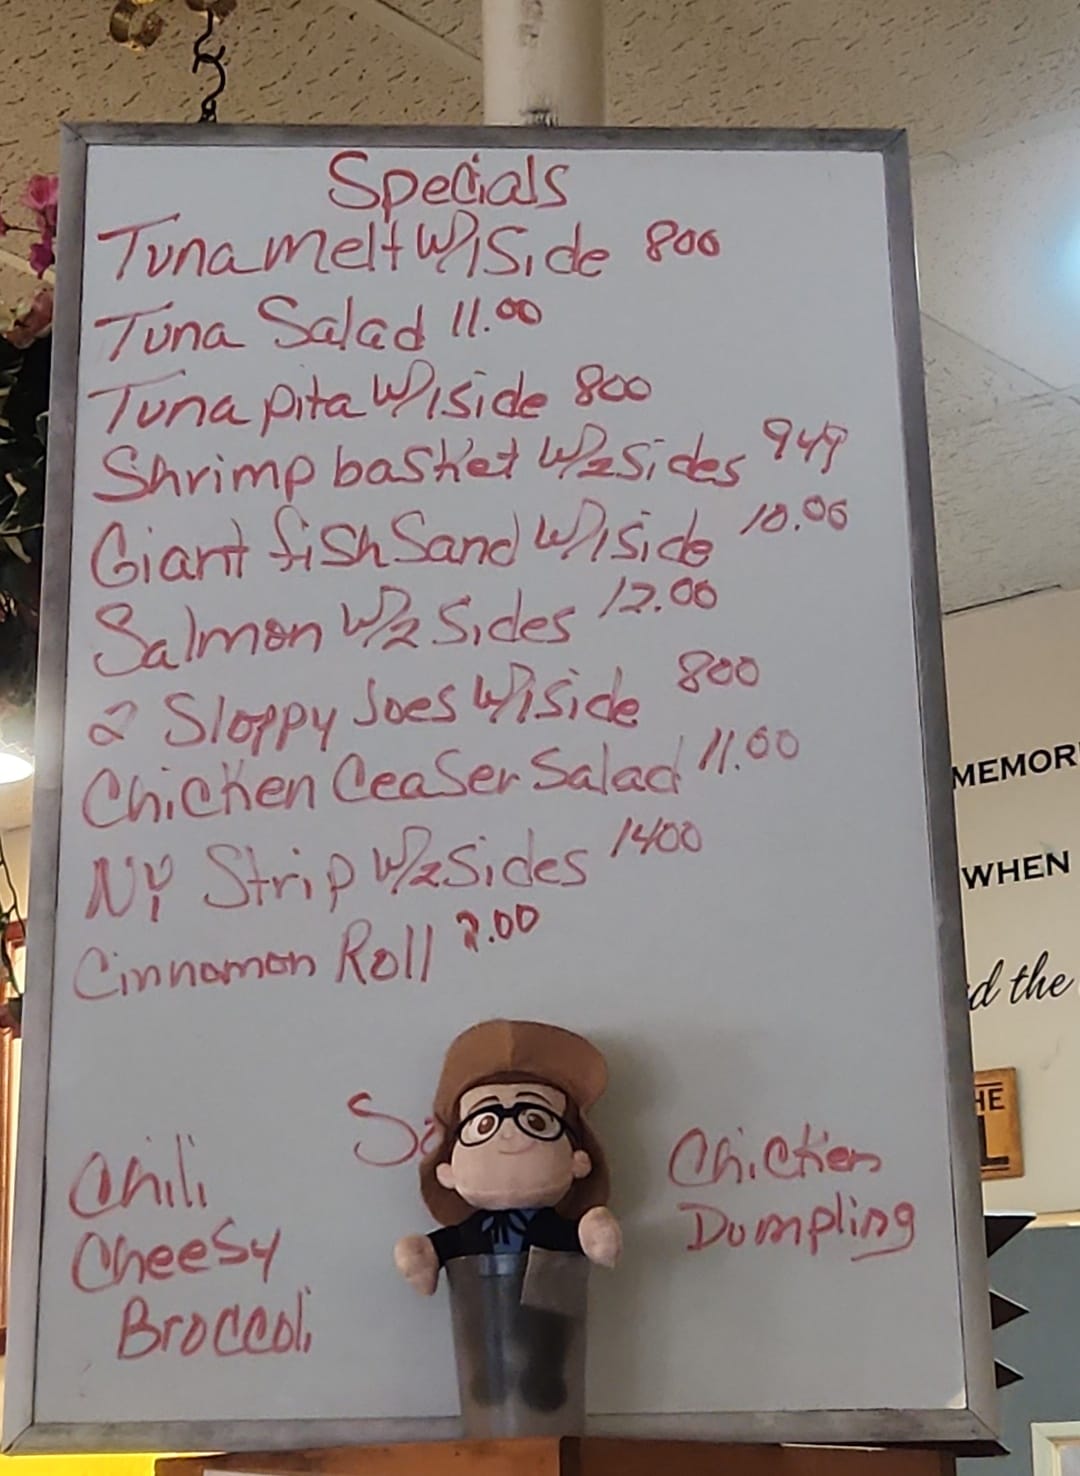 Specials
Tuna melt W/1 Side 800
Tuna Salad 11.00
Tuna pita W/1 side 800
Shrimp basket W/2 sides 949
Giant fish Sand W/1 side 10.00
Salmon W/2 Sides 12.00
2 Sloppy Joes W/1 side 800
Chicken Ceaser Salad 11.00
NY Strip W/2 Sides 1400
Cinnamon Roll 2.00
Chili
Cheesy
Broccoli
Chicken
Dumpling
MEMOR
WHEN
d the
HE